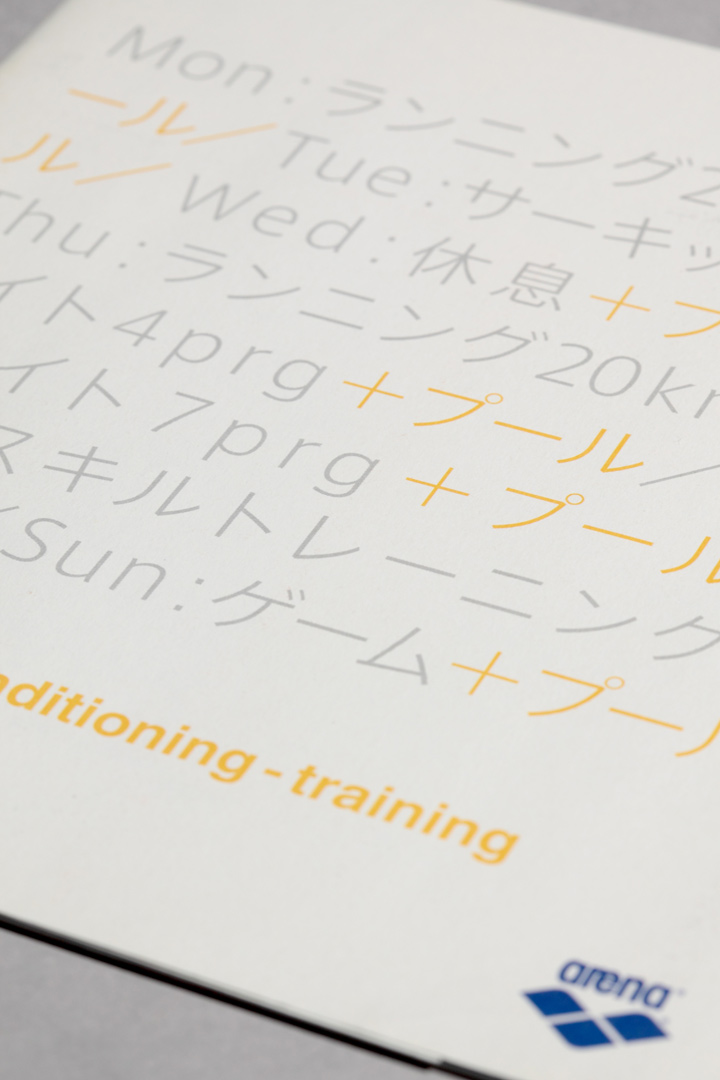 Mon:ランニング2
ール／ Tue:サーキッ
ル／ Wed:休息＋プ
Thu:ランニング20km
イト4prg＋プール／
イト7prg＋プール
スキルトレーニング
／Sun:ゲーム＋プール
nditioning - training
arena